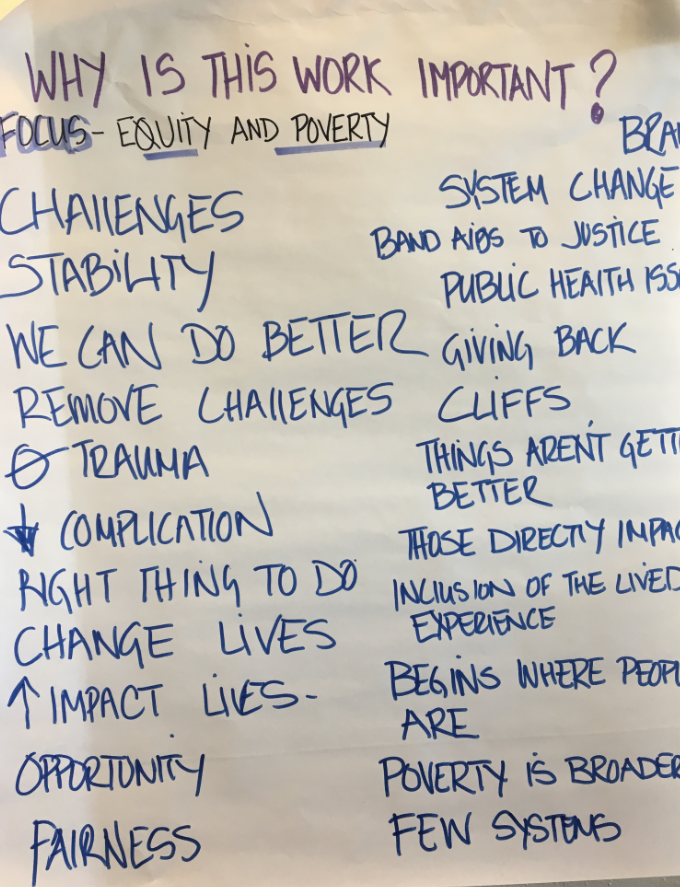 WHY IS THIS WORK IMPORTANT?
FOCUS- EQUITY AND POVERTY
CHALLENGES
STABILITY
WE CAN DO BETTER
REMOVE CHALLENGES
Ø TRAUMA
↓ COMPLICATION
RIGHT THING TO DO
CHANGE LIVES
↑ IMPACT LIVES-
OPPORTUNITY
FAIRNESS
SYSTEM CHANGE
BAND AIDS TO JUSTICE
PUBLIC HEALTH
GIVING BACK
CLIFFS
THINGS AREN'T
BETTER
THOSE DIRECTLY
INCLUSION OF THE LIVED
EXPERIENCE
BEGINS WHERE
ARE
POVERTY IS BROADER
FEW SYSTEMS